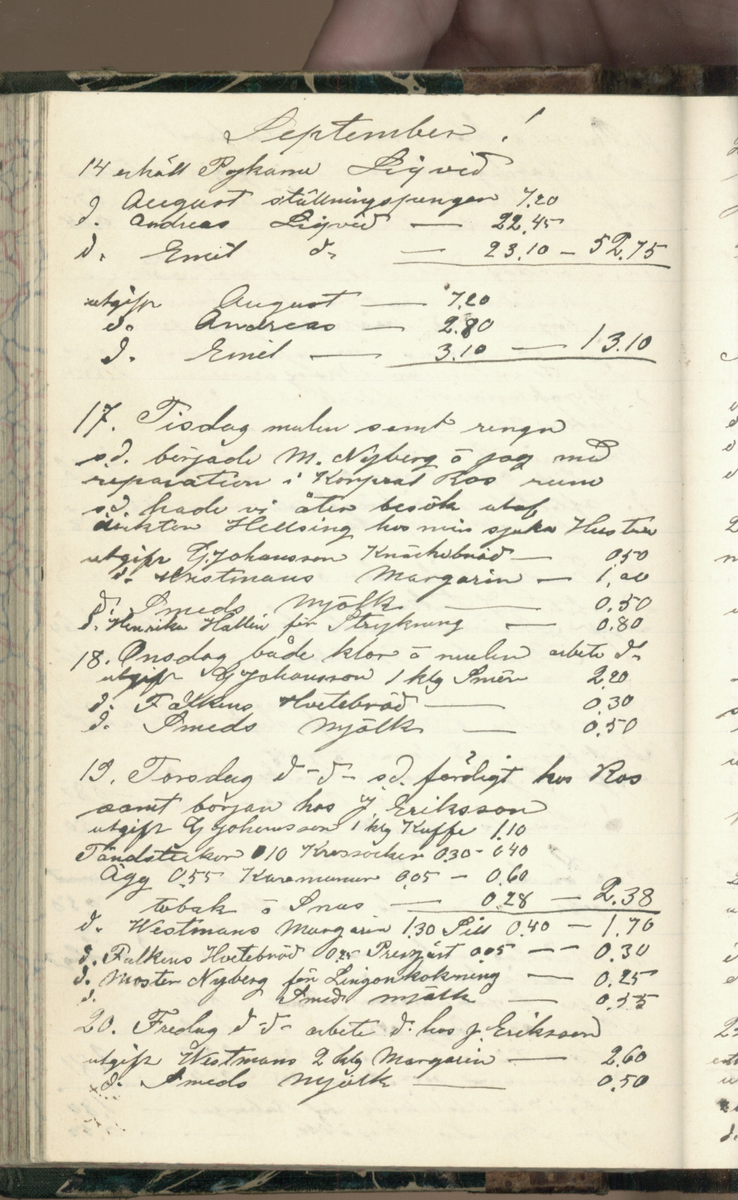 September !
14 erhöll Pojkarne Liqvid
d. August ställningspengar 7.20
d. Andreas Liqvid — 22.45
d. Emil d. — 23.10 — 52.75
utgift August — 7.20
d. Andreas — 2.80
d. Emil — 3.10 — 13.10
17. Tisdag mulen samt rengn
s.d. började M. Nyberg o jag med
reparation i Korpral Ros rum
s.d. hade vi åter besök utaf
Hellsing hos min sjuka Hustru
utgift G Johansson Knäckebröd — 0.50
d. Westmans Margarin — 1,00
d. Smeds Mjölk — 0.50
d. Henrika Hallin för Strykning — 0.80
18. Onsdag både klar o mulen arbete d-
utgift G Johansson 1 klg Smör 2.20
d. Falkens Hvetebröd — 0.30
d. Smeds Mjölk — 0.50
19. Torsdag d-d- s.d. färdigt hos Ros
samt början hos J Eriksson
utgift G Johansson 1 klg Kaffe 1.10
Tändstickor 10 Krossocker 0.30 - 0.40
Ägg 0.55 0.05 — 0.60
tobak o Snus — 0.28 — 2.38
d. Westmans Margarin 1.30 Sill 0.40 — 1.70
d. Falkens Hvetebröd 0.25 Pressjäst 0.05 — 0.30
d. Moster Nyberg för Lingonkokning — 0.25
d. Smed mjölk — 0.55
20. Fredag d-d- arbete d. hos J. Eriksson
utgift Westmans 2 klg Margarin — 2.60
d. Smeds Mjölk — 0.50